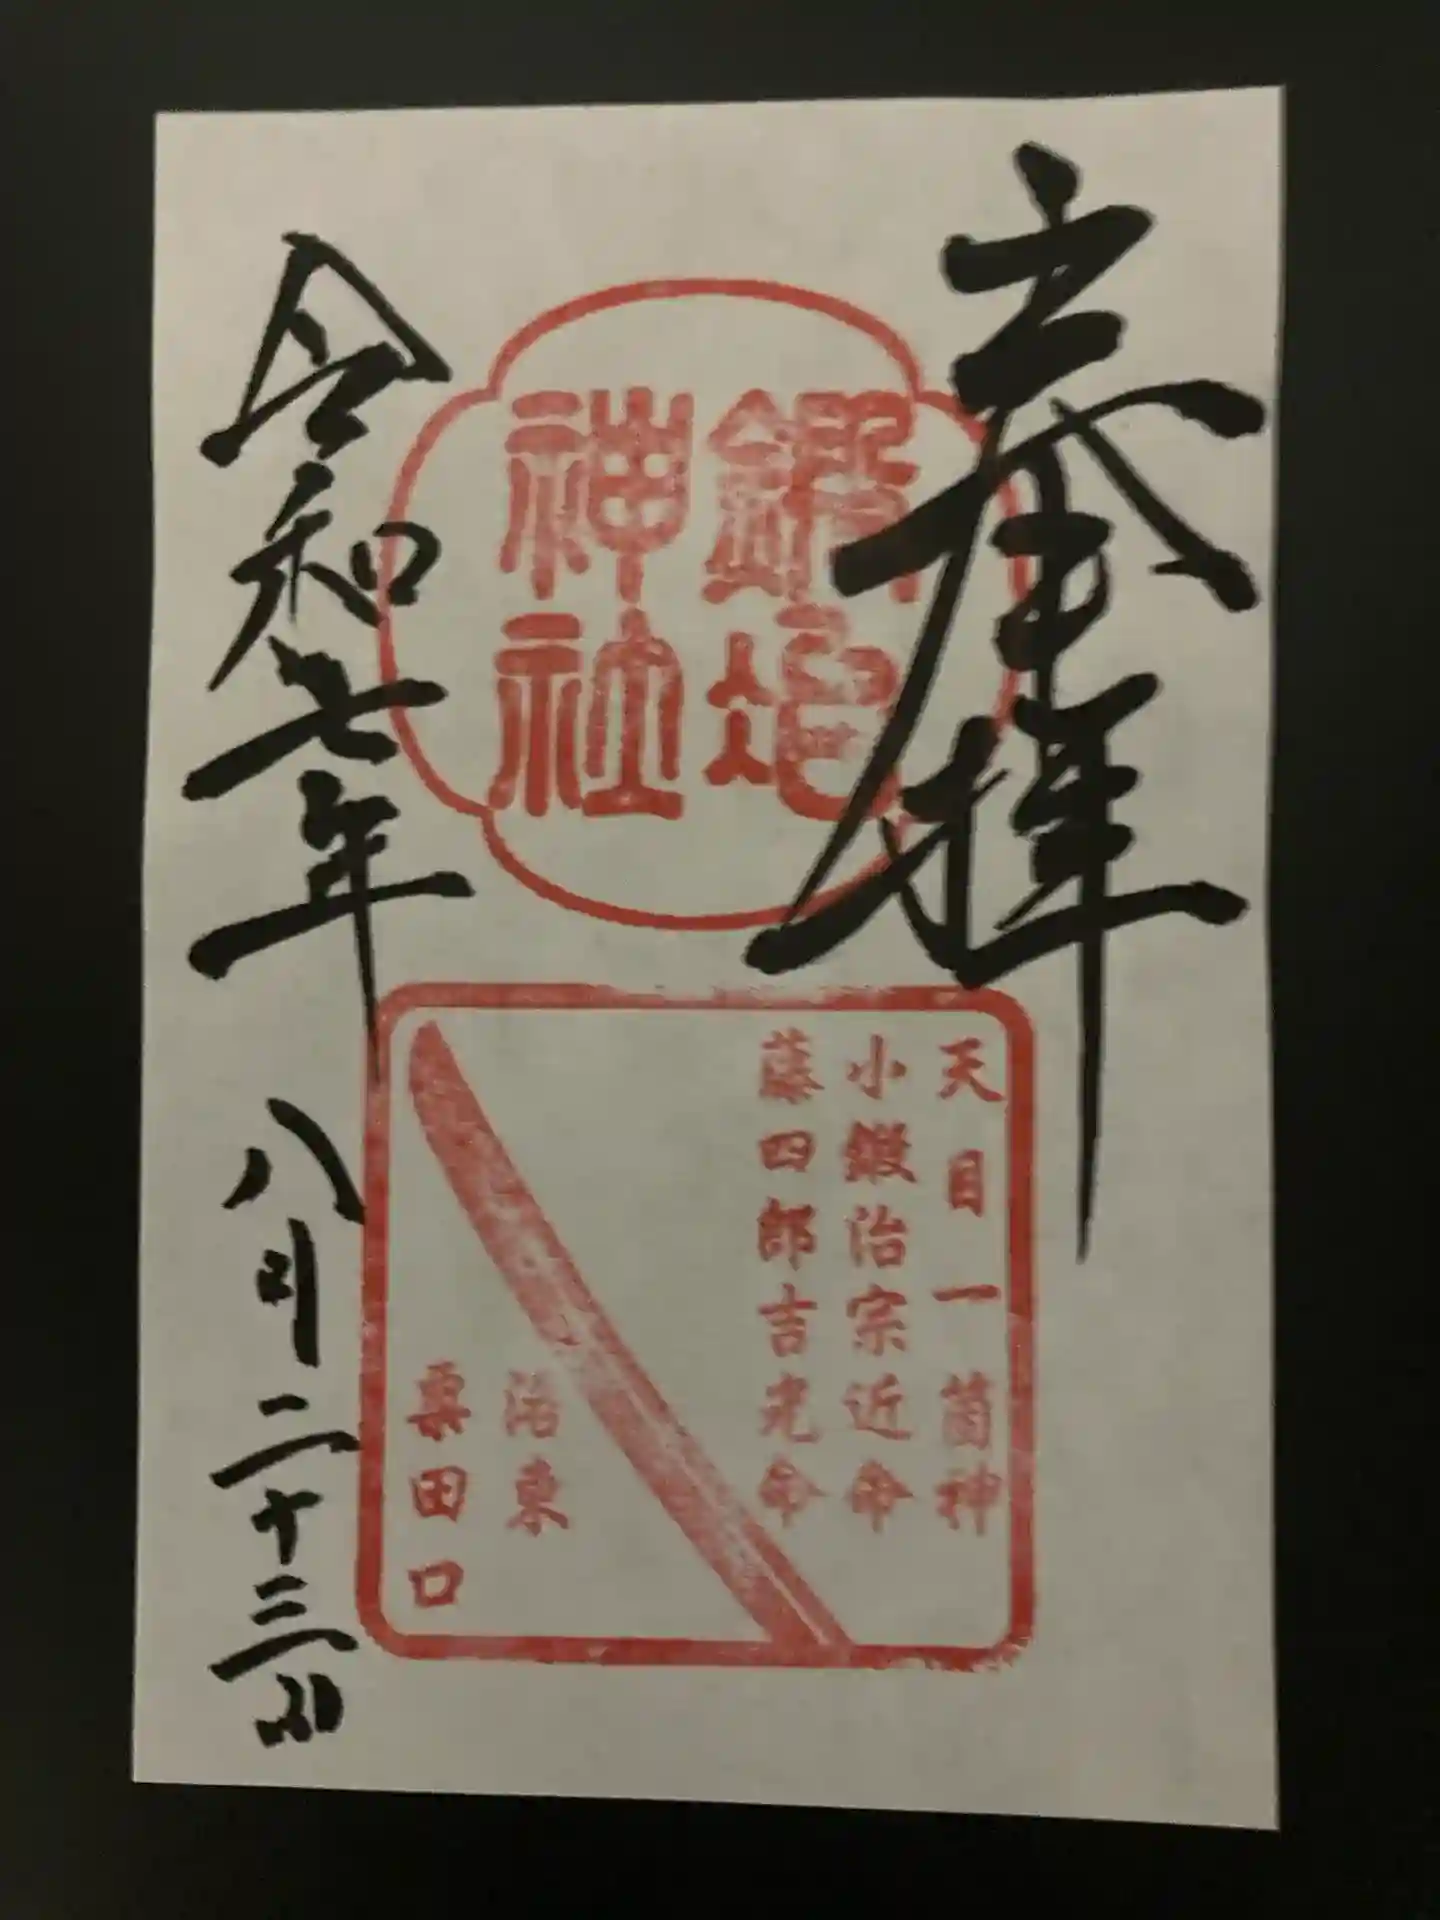 奉拝
鍛冶神社
天目一箇神
小鍛治宗近命
藤四郎吉光命
洛東
粟田口
令和七年 八月二十三日